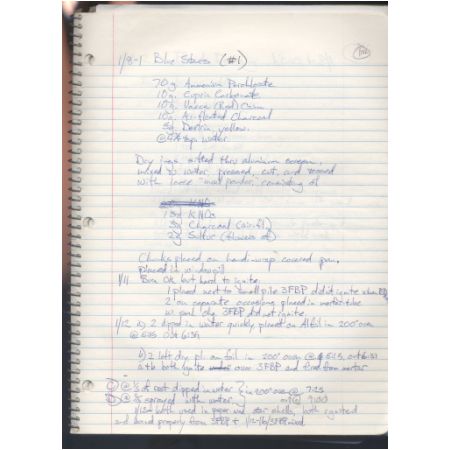 1/8-1 Blue Stars (#1)
70g. Ammonium Perchlorate
10g. Cupric Carbonate
10g. (Red) Gum
10g. Air-floated Charcoal
5g. Dextrin, yellow.
water
Dry ings. sifted thru aluminum screen,
mixed water, pressed, cut, and
with loose "meal powder," consisting of
15g KNO3
3g Charcoal (airfl)
2g Sulfur (flowers of)
Chunks placed on handi-wrap covered pan,
placed in
1/11 Burn OK but hard to ignite:
1 placed next to small pile 3FBP did it ignite when
2 on separate occasions placed in mortar tube
w/ 3FBP did not ignite.
1/12 a) 2 dipped in water quickly, placed on Al foil in 200° oven
@ out
b) 2 left dry, pl. on foil in 200° oven @ 5:45, out 6:31
both ignite over 3FBP and fired from mortar
C) @ 1/3 of rest dipped in water } in 200° oven @ 7:25
D) @ sprayed with water } out @ 9:00
both used in paper star shells, both ignited
and burned properly from 3FBP +